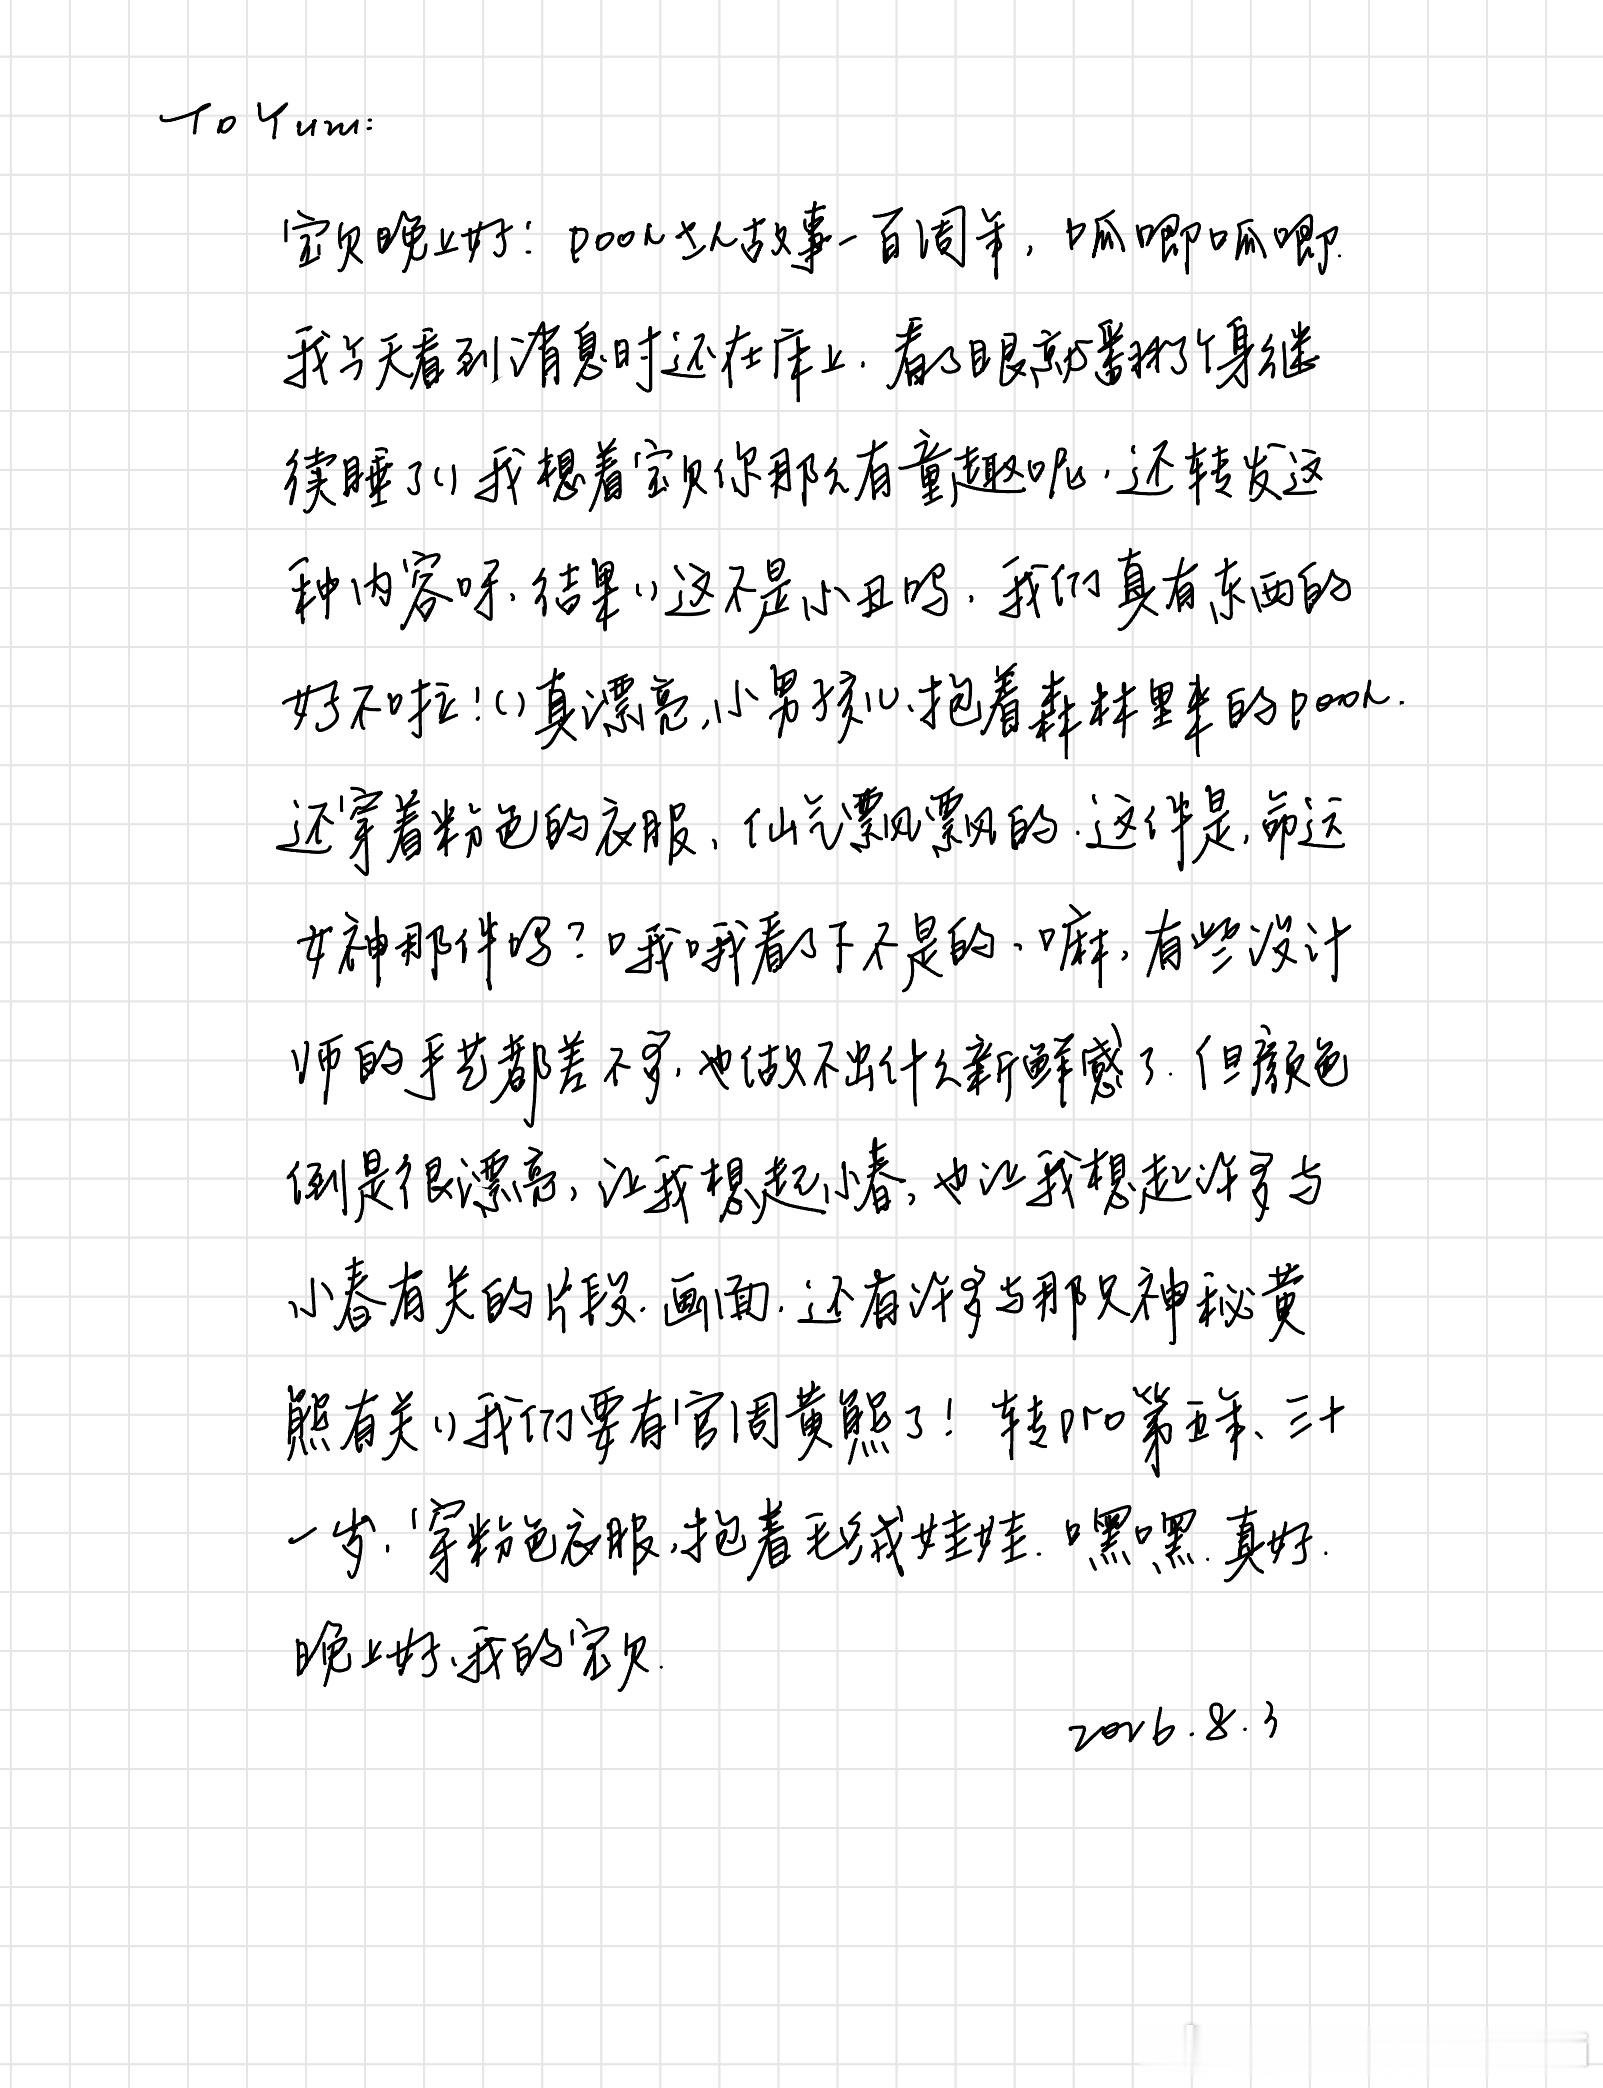 To Yuzu:
宝贝晚上好！pooh さん故事一百周年，呱唧呱唧.
我今天看到消息时还在床上.看了眼就翻了个身继
续睡了()我想着宝贝你那么有童趣呢，还转发这
种内容呀，结果()这不是小丑吗，我们真有东西的
好不啦！()真漂亮，小男孩儿、抱着森林里来的pooh.
还穿着粉色的衣服、仙气飘飘的.这件是，命运
女神那件吗？哦哦看了下不是的、嘛，有些设计
师的手艺都差不多，也做不出什么新鲜感了.但颜色
倒是很漂亮，让我想起小春，也让我想起许多与
小春有关的片段.画面.还有许多与那只神秘黄
熊有关()我们要有官周黄熊了！转pro第五年、三十
一岁，穿粉色衣服，抱着毛绒娃娃.嘿嘿.真好.
晚上好、我的宝贝.
2026.8.3